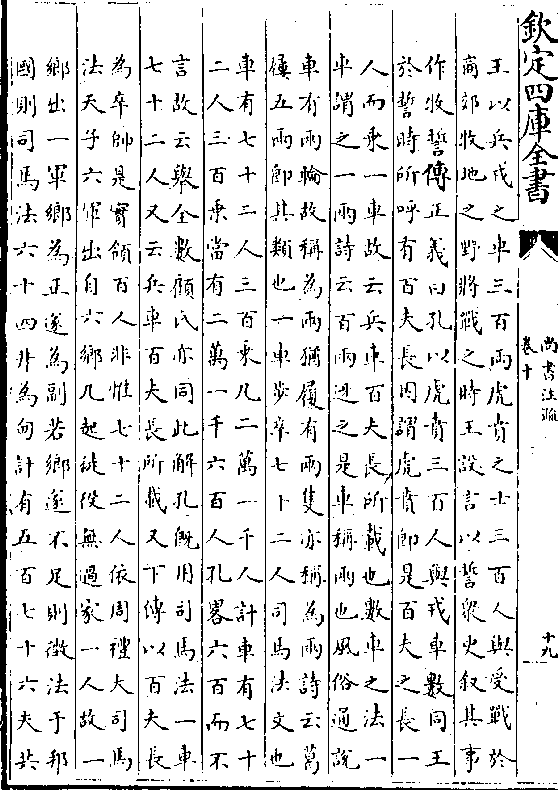 欽定四庫全書
尚書注疏
卷十
十九
王以兵戎之車三百兩虎賁之士三百人與受戰於
商郊牧地之野將戰之時王設言以誓衆史叙其事
作牧誓傳正義曰孔以虎賁三百人與戎車數同王
於誓時所呼有百夫長因謂虎賁即是百夫之長一
人而乘一車故云兵車百夫長所載也數車之法一
車謂之一兩詩云百兩迓之是車稱兩也風俗通說
車有兩輪故稱為兩猶履有兩隻亦稱為兩詩云葛
屨五兩即其類也一車步卒七十二人司馬法文也
車有七十二人三百乘凡二萬一千人計車有七十
二人三百乘當有二萬一千六百人孔畧六百而不
言故云舉全數顧氏亦同此解孔既用司馬法一車
七十二人又云兵車百夫長所載又下傳以百夫長
為卒帥是實領百人非惟七十二人依周禮大司馬
法天子六軍出自六鄉凡起徒役無過家一人故一
鄉出一軍鄉為正遂為副若鄉遂不足則徵法于邦
國則司馬法六十四井為甸計有五百七十六夫共